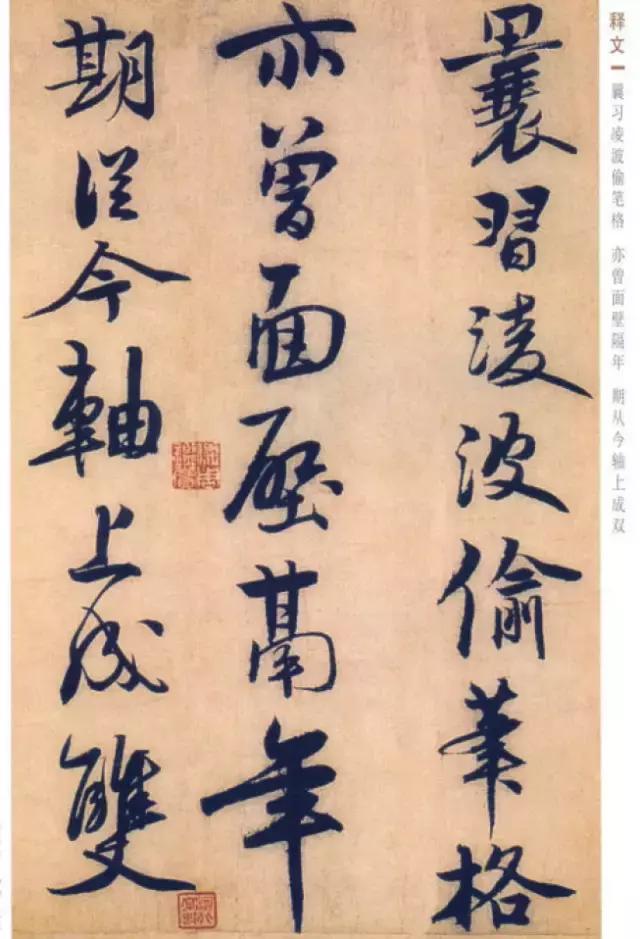 释文一 曩习凌波偷笔格 亦曾面壁隔年 期从今轴上成双
曩習凌波偷筆格
亦曾面壁鬲年
期從今軸上成雙